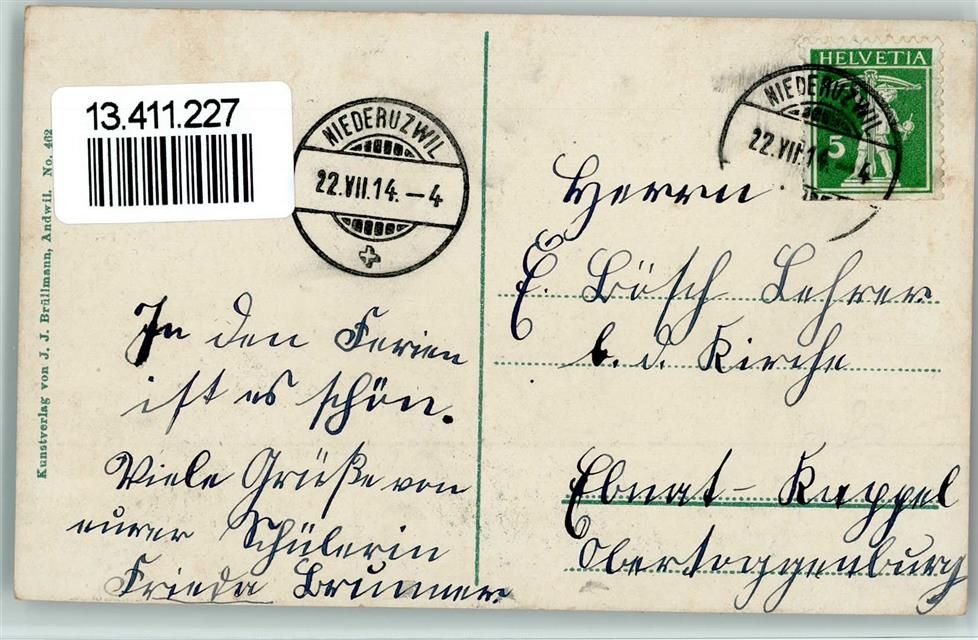 13.411.227
Kunstverlag von J. J. Brüllmann, Andwil. No. 462
NIEDERUZWIL
22.VII.14.–4
In den Ferien
ist es schön.
Viele Grüße von
eurer Schülerin
Frieda Brunner
HELVETIA
5
NIEDERUZWIL
22.VII.14.–4
Herrn
E. Bösch Lehrer
b. d. Kirche
Ebnat-Kappel
Obertoggenburg